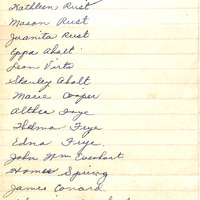 Kathleen Rust
Mason Rust
Juanita Rust
Eppa Ahalt
Leon Virts
Stanley Ahalt
Marie Cooper
Althea Frye
Thelma Frye
Edna Frye.
John Wm Everhart
Homer Spring
James Conard